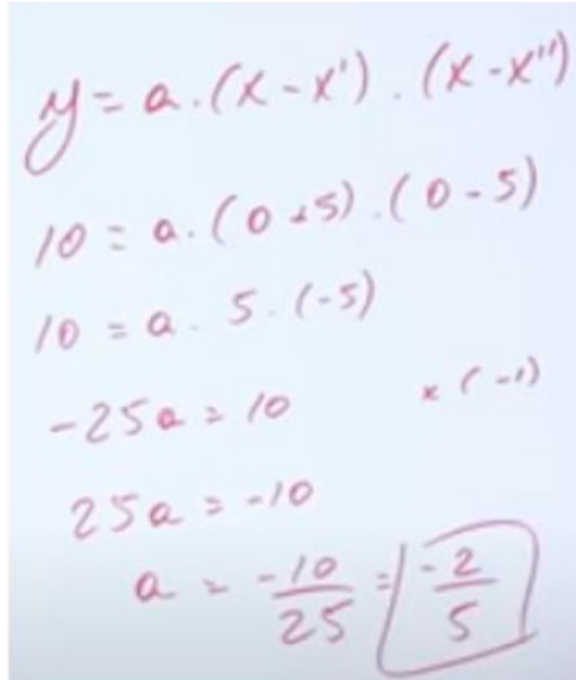 y = a . (x - x') . (x - x'')
10 = a . (0 + 5) . (0 - 5)
10 = a . 5 . (-5)
-25a = 10 x (-1)
25a = -10
a = -10/25 = -2/5